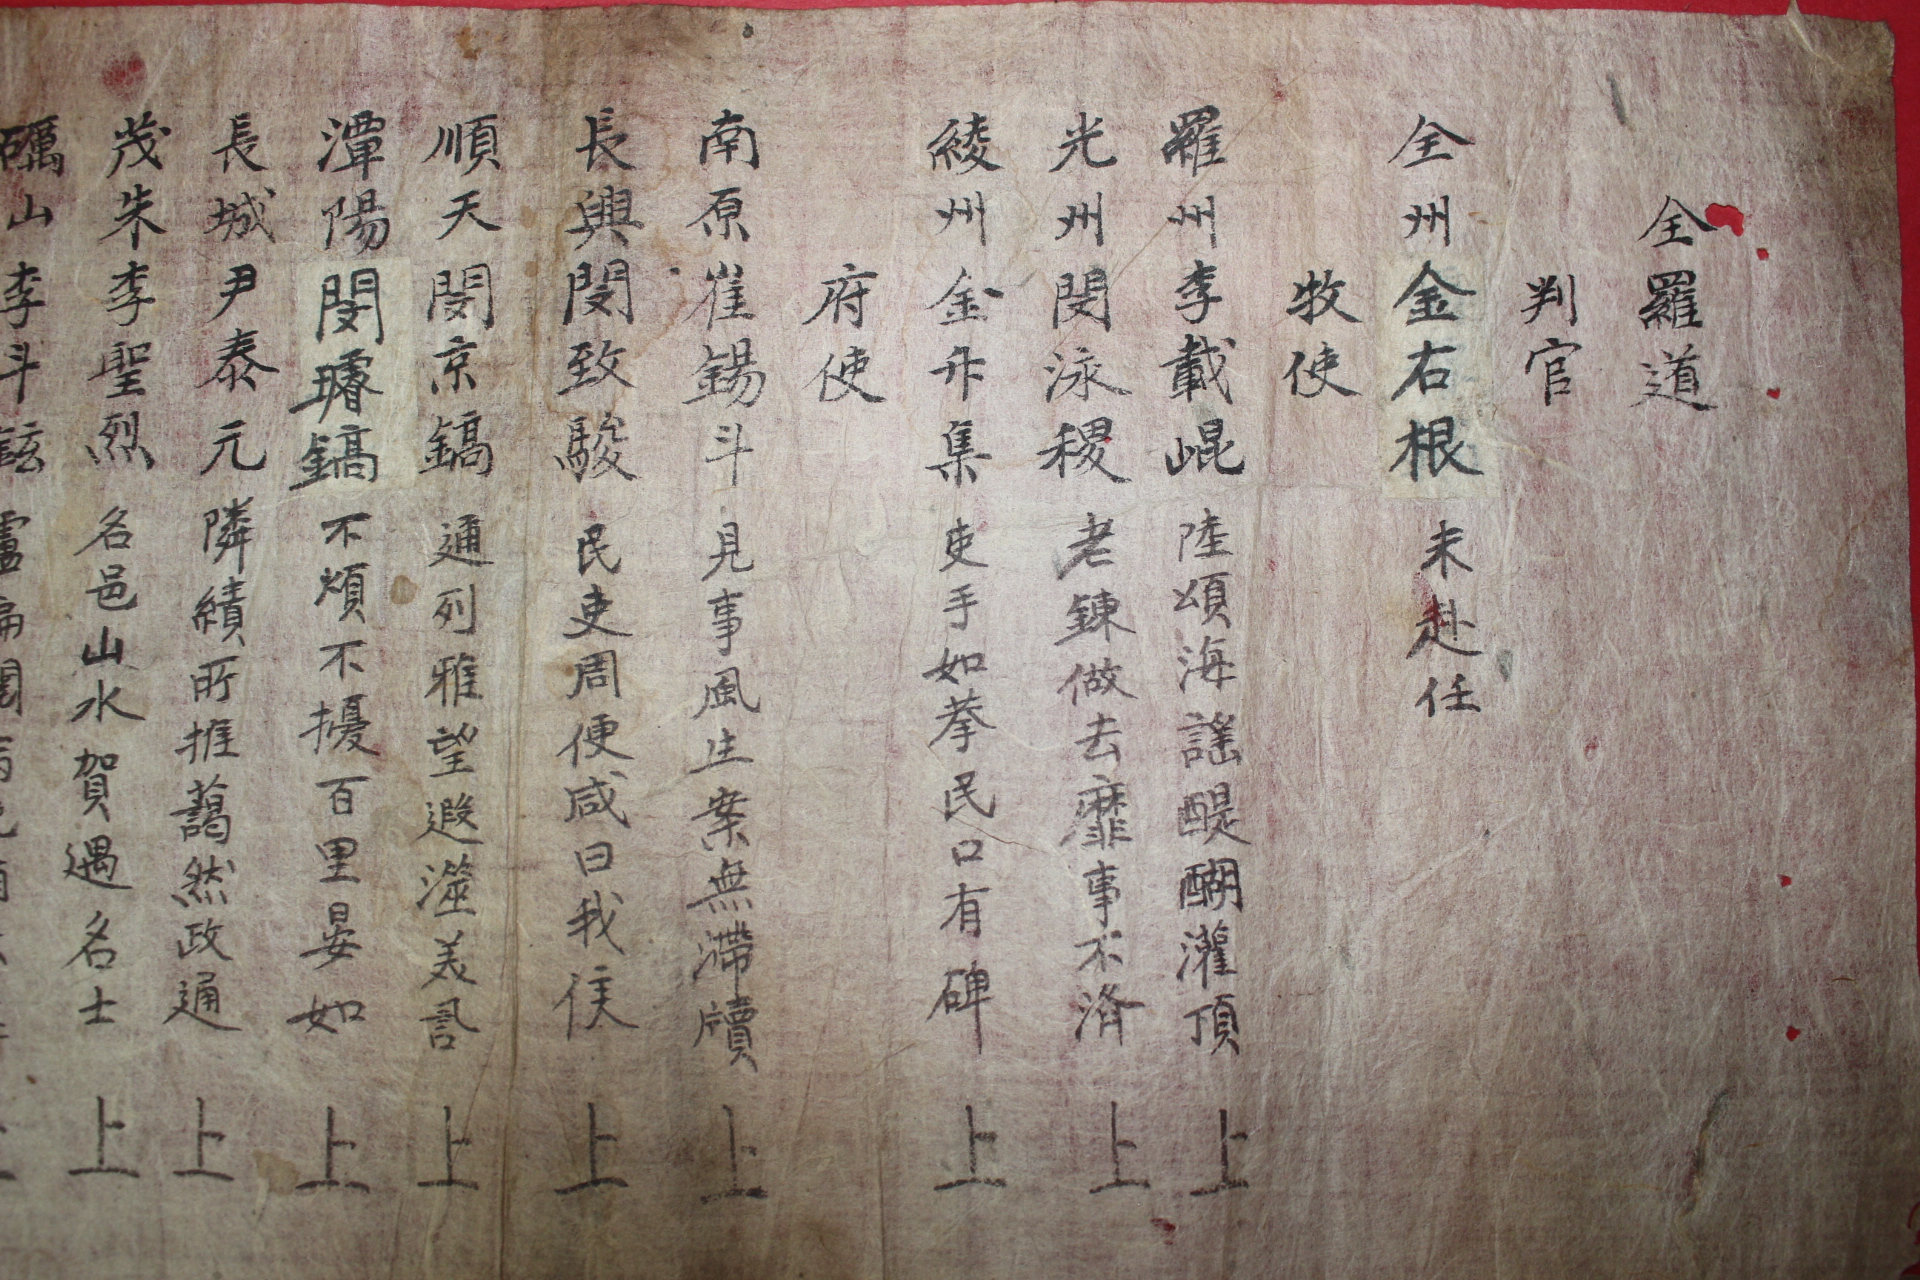 全羅道
判官
全州金右根 未赴任
牧使
羅州李載崐 陸頌海謠醍醐灌頂 上
光州閔泳稷 老鍊做去靡事不濟 上
綾州金升集 吏手如拳民口有碑 上
府使
南原崔錫斗 見事風生案無滯牘 上
長興閔致駿 民吏周便咸曰我侯 上
順天閔京鎬 通列雅望遐滋美譽 上
潭陽閔璿鎬 不煩不擾百里晏如 上
長城尹泰元 隣績所推藹然政通 上
茂朱李聖烈 名邑山水賀遇名士 上
礪山李斗鉉